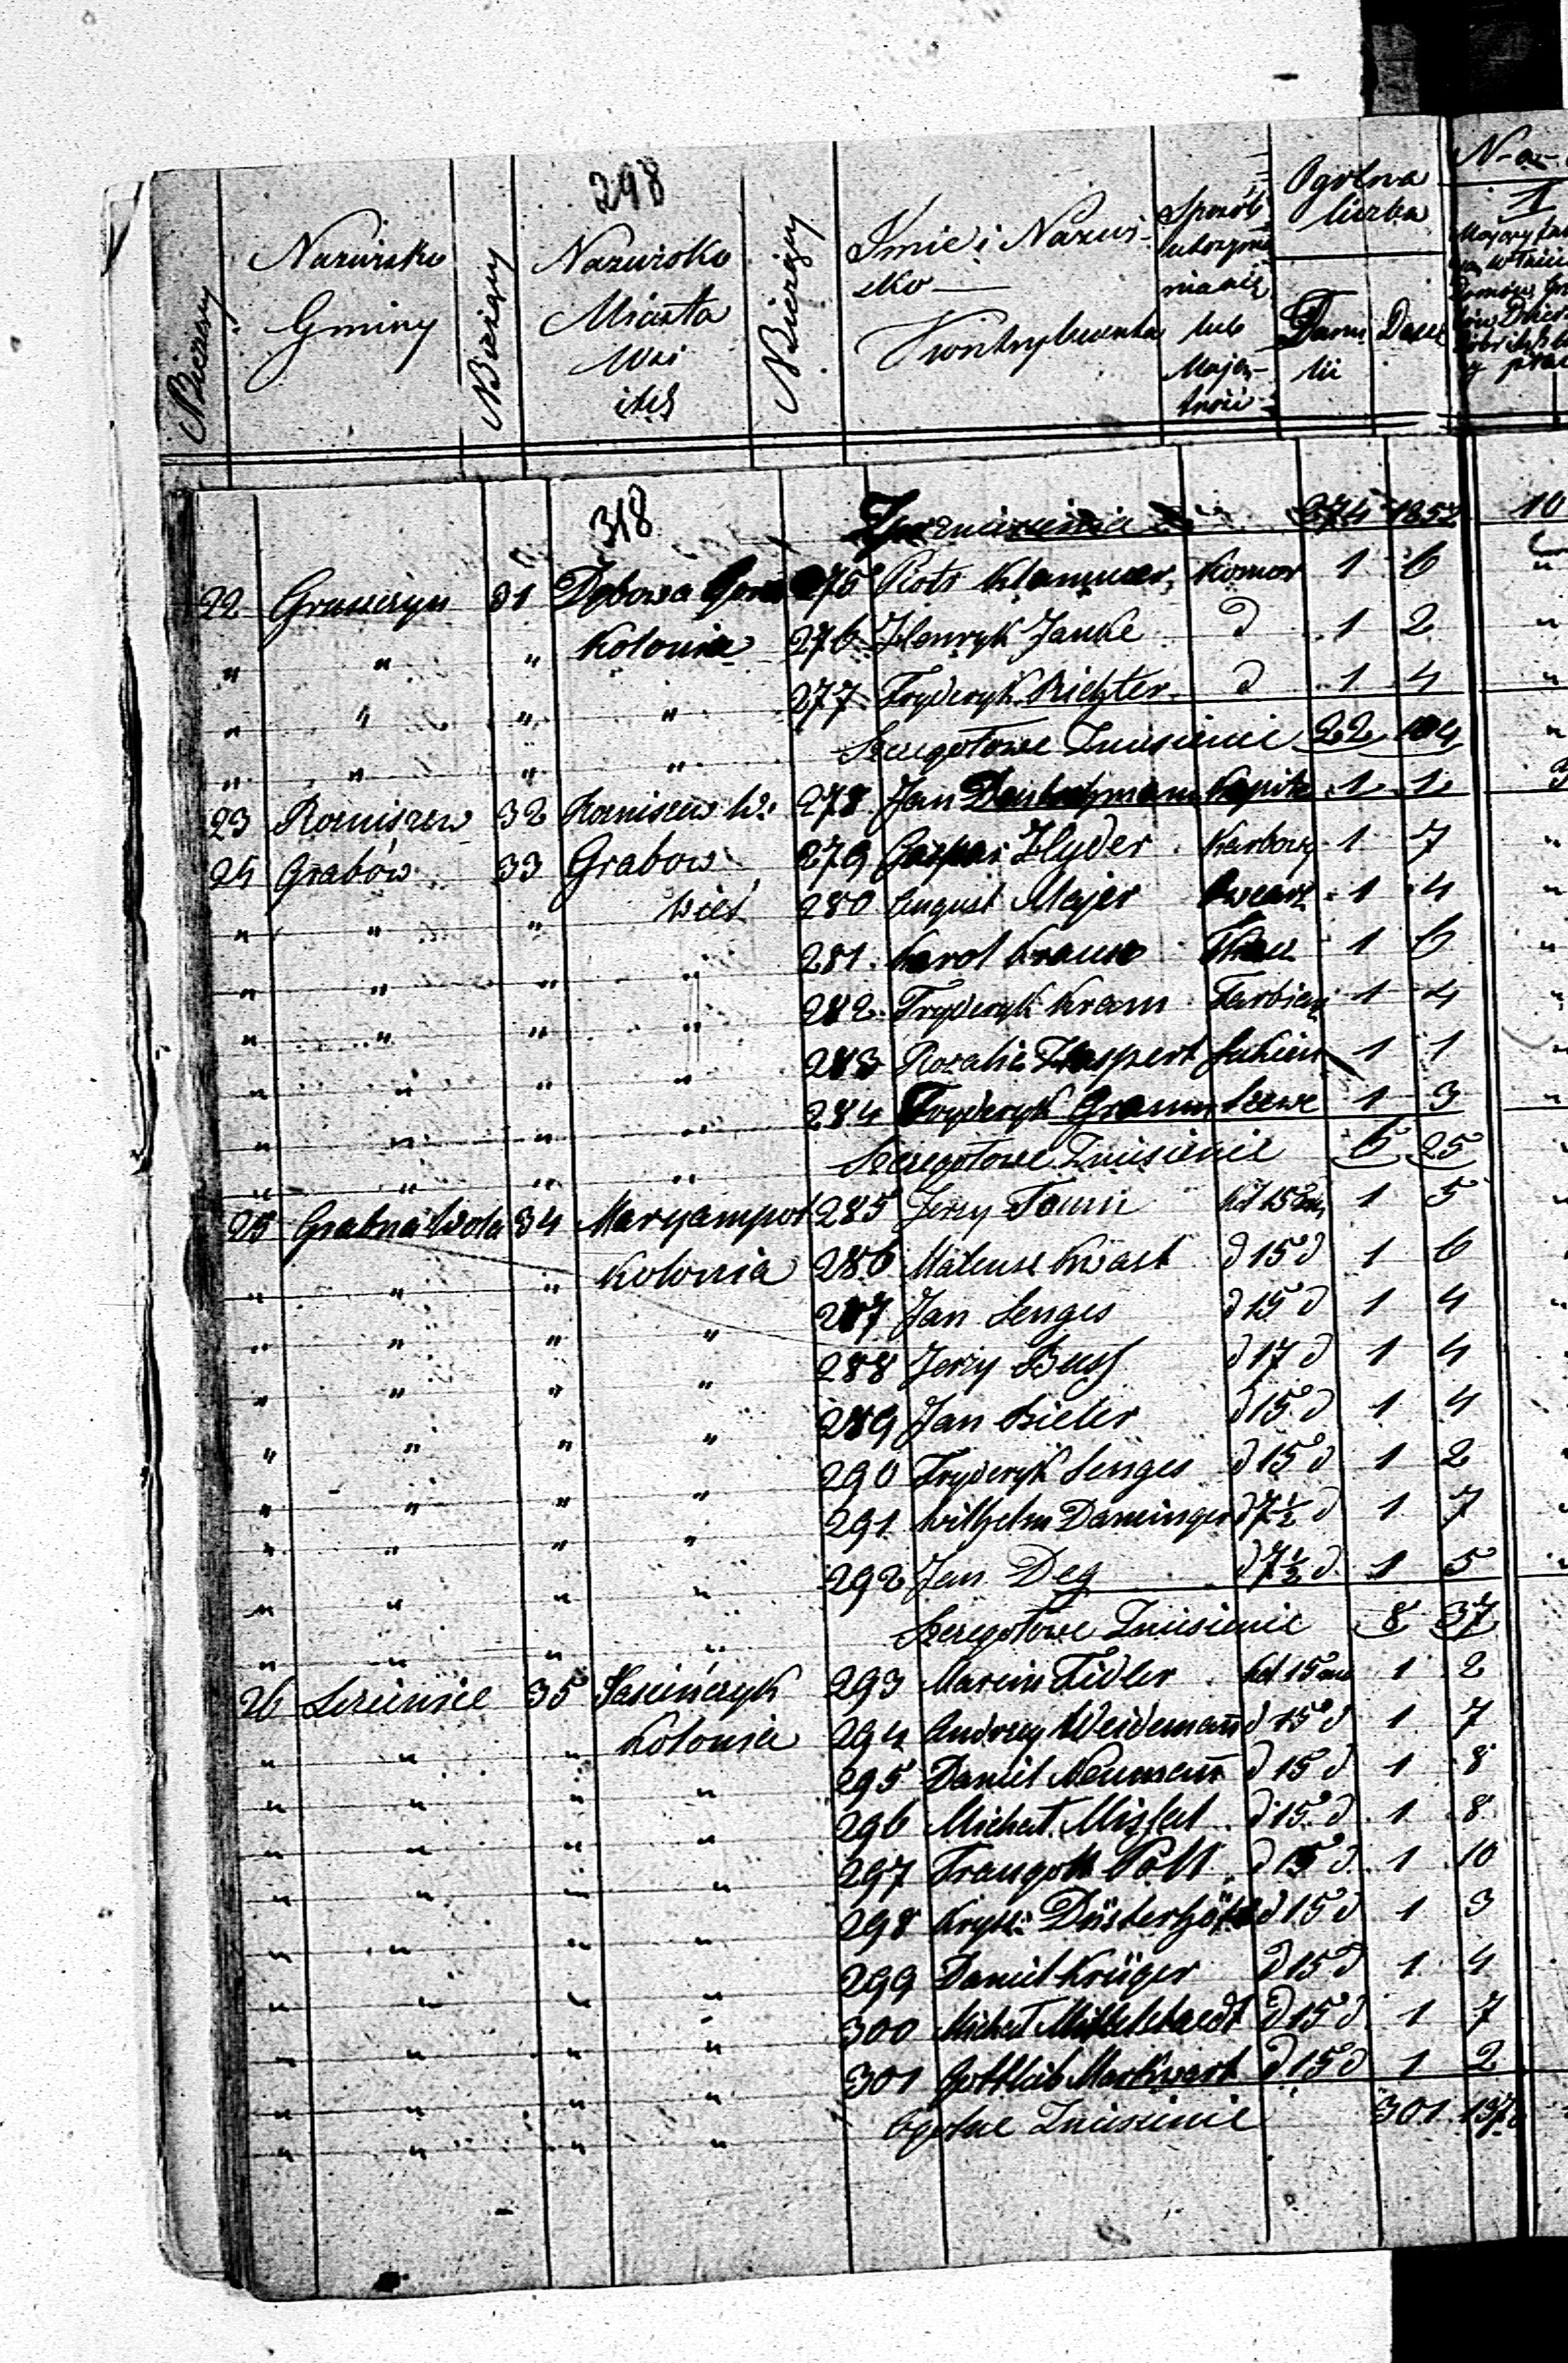 298
N Bieżący Nazwisko Gminy N Bieżący Nazwisko Miasta Wsi itd N Bieżący Imie i Nazwisko Kontrybuenta Sposób utrzymania się lub Majętność Ogólna liczba Familii Dusz
N-a-
1
318
Z przeniesienia 274 1852 10
22 Gruszczyn 31 Dębowa Gora 275 Piotr Klammer Komor 1 6
" " " Kolonia 276 Henryk Janke d 1 2
" " " " 277 Fryderyk Richter d 1 4
" " " " Szczegołowe Zniesienie 22 104
23 Rozniszew 32 Rozniszew W. 278 Jan 1 1
24 Grabów 33 Grabow 279 Gaspar Hyder Karbowy 1 7
" " " Wieś 280 August Mejer Owcarz 1 4
" " " " 281 Karol Krause 1 6
" " " " 282 Fryderyk Kram Farbierz 1 4
" " " " 283 Rozalia 1 1
" " " " 284 Fryderyk Gramm Szewc 1 3
" " " " Szczegołowe Zniesienie 6 25
25 Grabna Wola 34 Maryampol 285 Jerzy 1 5
" " " Kolonia 286 Mateusz Kwast d 15 d 1 6
" " " " 287 Jan Senges d 15 d 1 4
" " " " 288 Jerzy Busch d 17 d 1 4
" " " " 289 Jan Bieler d 15 d 1 4
" " " " 290 Fryderyk Senges d 15 d 1 2
" " " " 291 Wilhelm Daminger d 7½ d 1 7
" " " " 292 Jan Deg d 7½ d 1 5
" " " " Szczegołowe Zniesienie 8 37
26 35 Jasieńczyk 293 Marcin Fidler 15 1 2
" " " Kolonia 294 Andrzey Weidemann d 15 d 1 7
" " " " 295 Daniel Neumann d 15 d 1 8
" " " " 296 Michał d 15 d 1 8
" " " " 297 Traugott d 15 d 1 10
" " " " 298 Kryst: Düsterhöft d 15 d 1 3
" " " " 299 Daniel Krüger d 15 d 1 4
" " " " 300 Michał Mittelstaedt d 15 d 1 7
" " " " 301 Gottlieb Markwart d 15 d 1 2
" " " " Ogolne Zniesienie 301